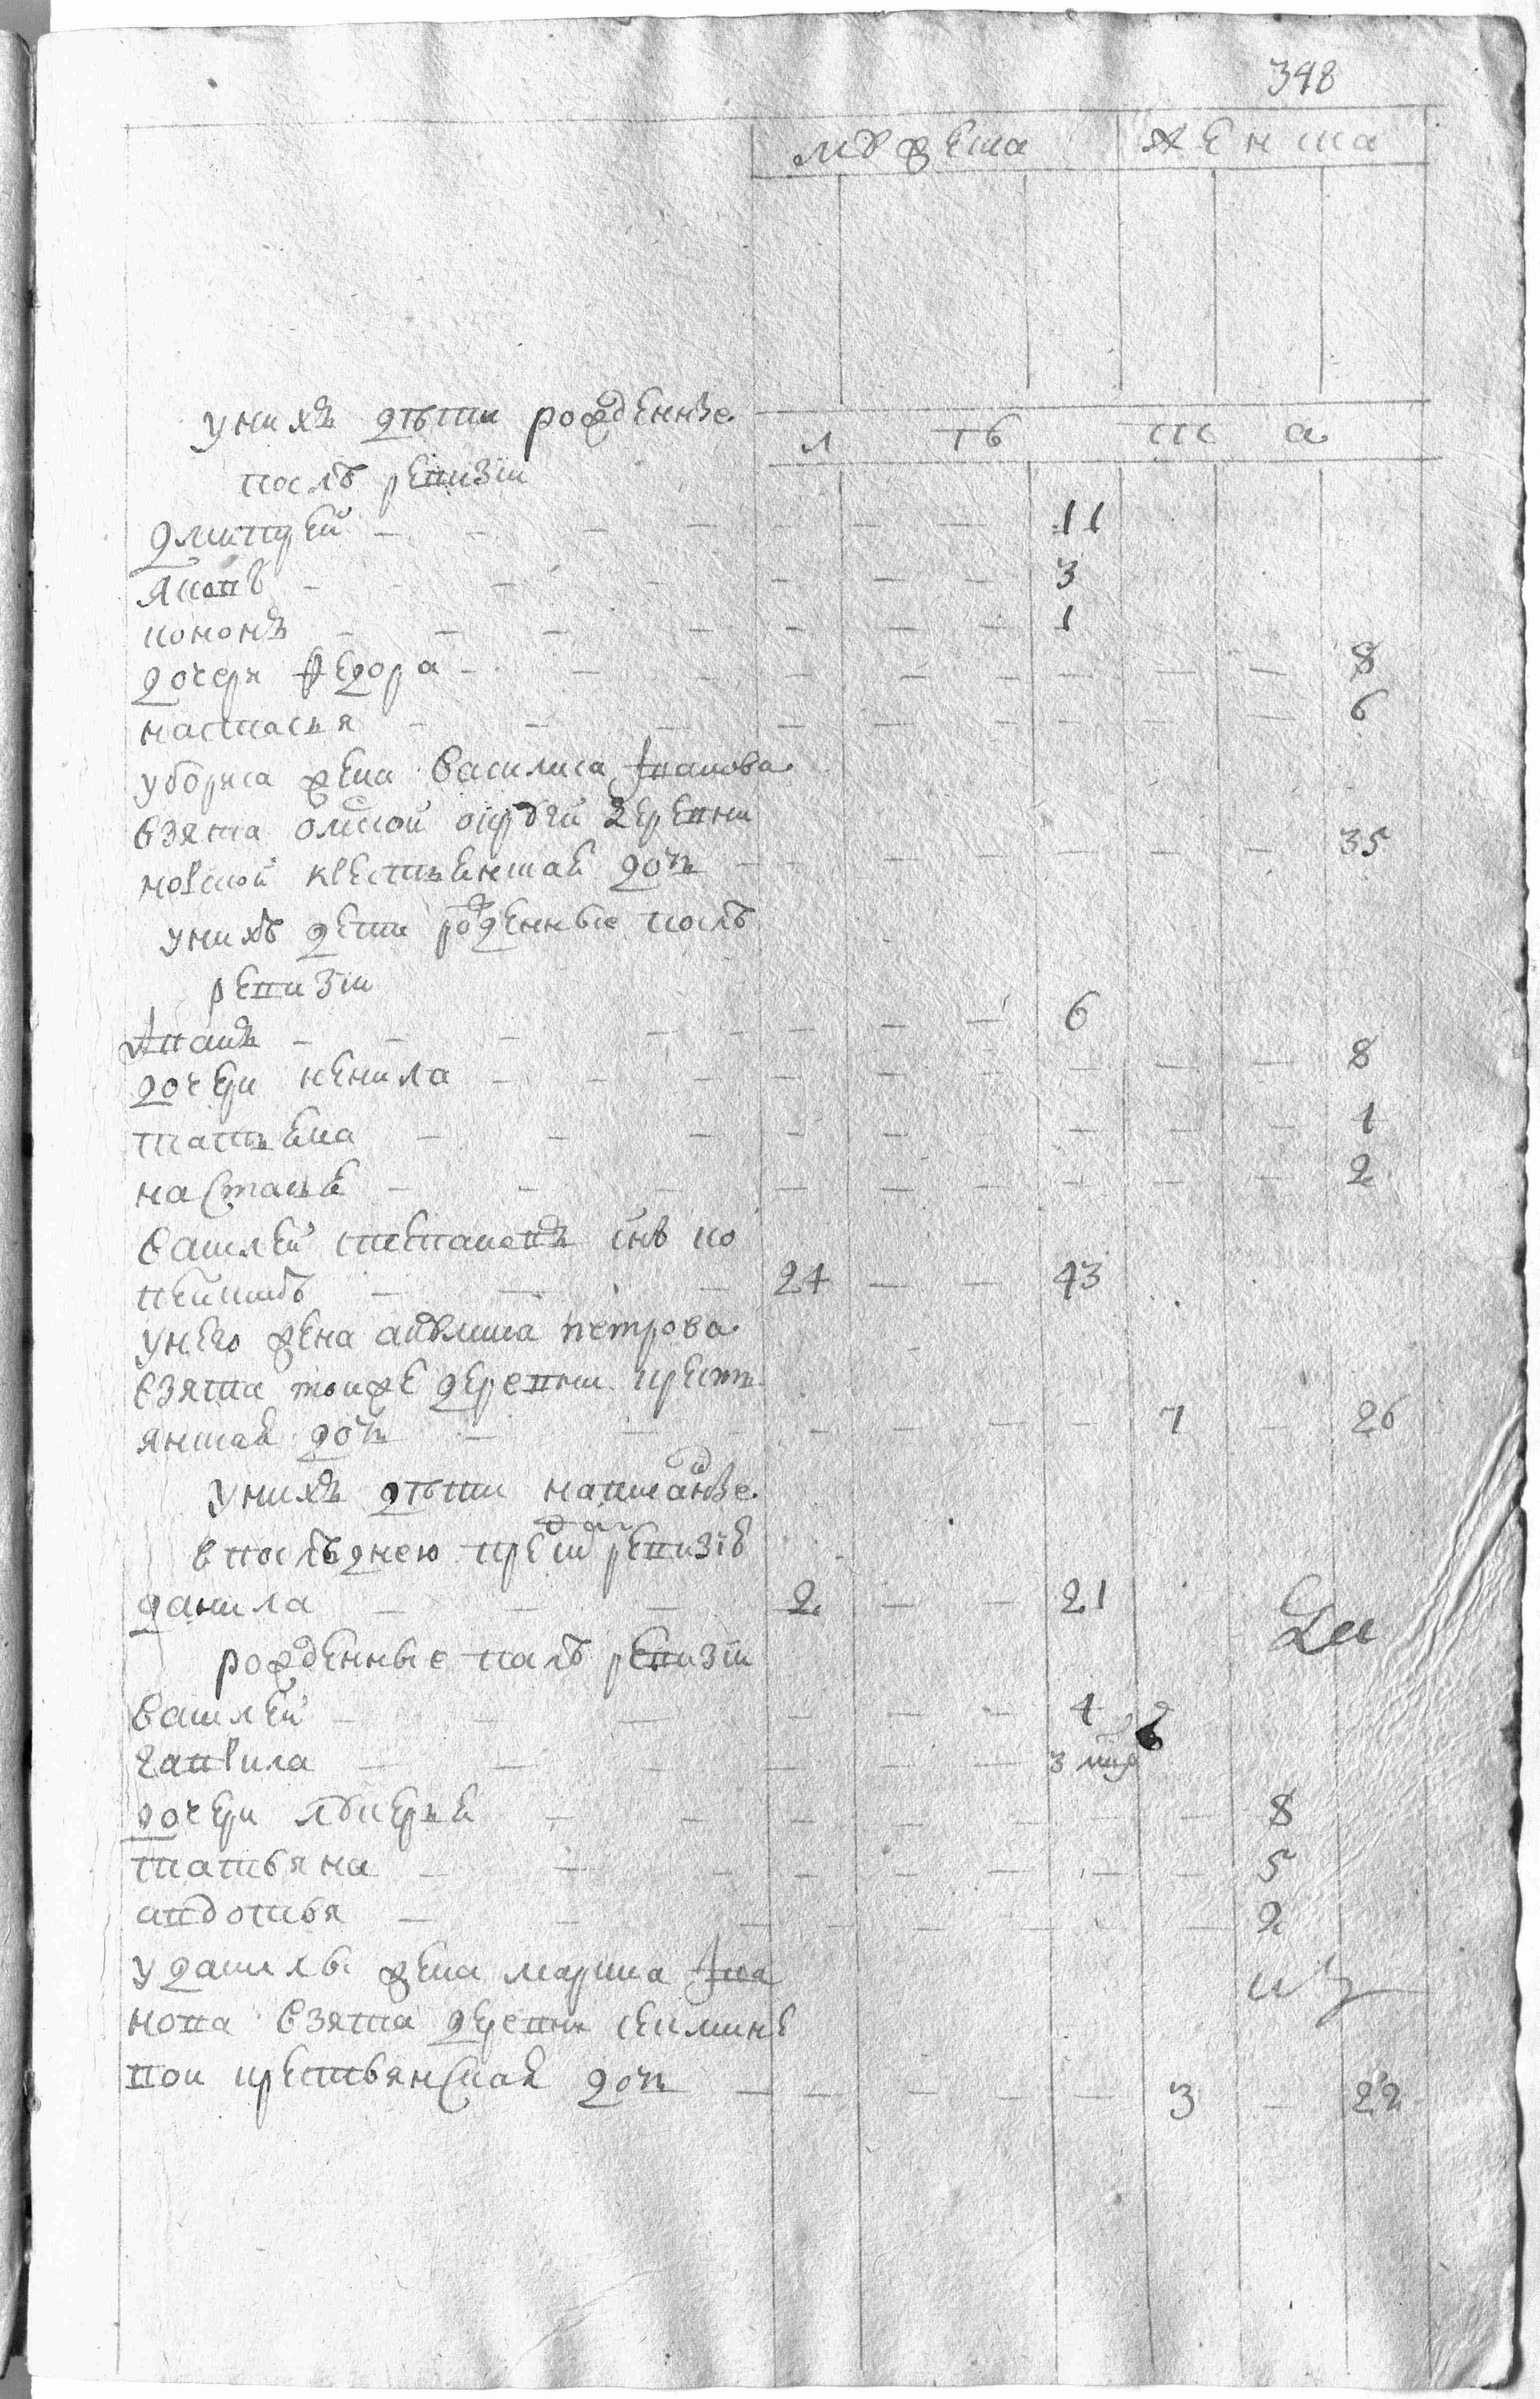 398
мужеска женска
у нихъ дѣти рожденные
л ѣ т а
послѣ ревизiи
Дмитрей 11
яковъ 3
кононъ 1
дочери федора 8
настасья 6
у бориса жена василиса иванова
взята омской округи деревни
новской крестьянская дочь 35
у нихъ дети рожденные послѣ
ревизiи
иванъ 6
дочери ненила 8
татьяна 1
настасья 2
василей степановъ снъ ко
24 43
у него жена акулина петрова
взята тоиже деревни крест
янская дочь 7 26
у нихъ дѣти написанные
в последнею пред сей ревизiе
данила 2 21
рожденные послѣ ревизiи
василей 4
гаврила 3 нед
дочери лукерья 8
татьяна 5
авдотья 2
у данилы жена марина ива
нова взята деревни
вои крестьянская дочь 3 22